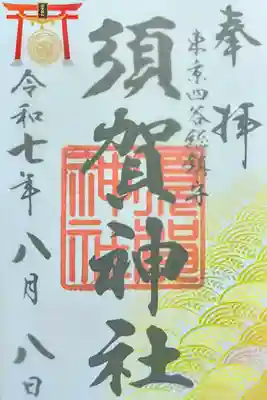 奉拝
東京四谷総鎮守
須賀神社
令和七年八月八日